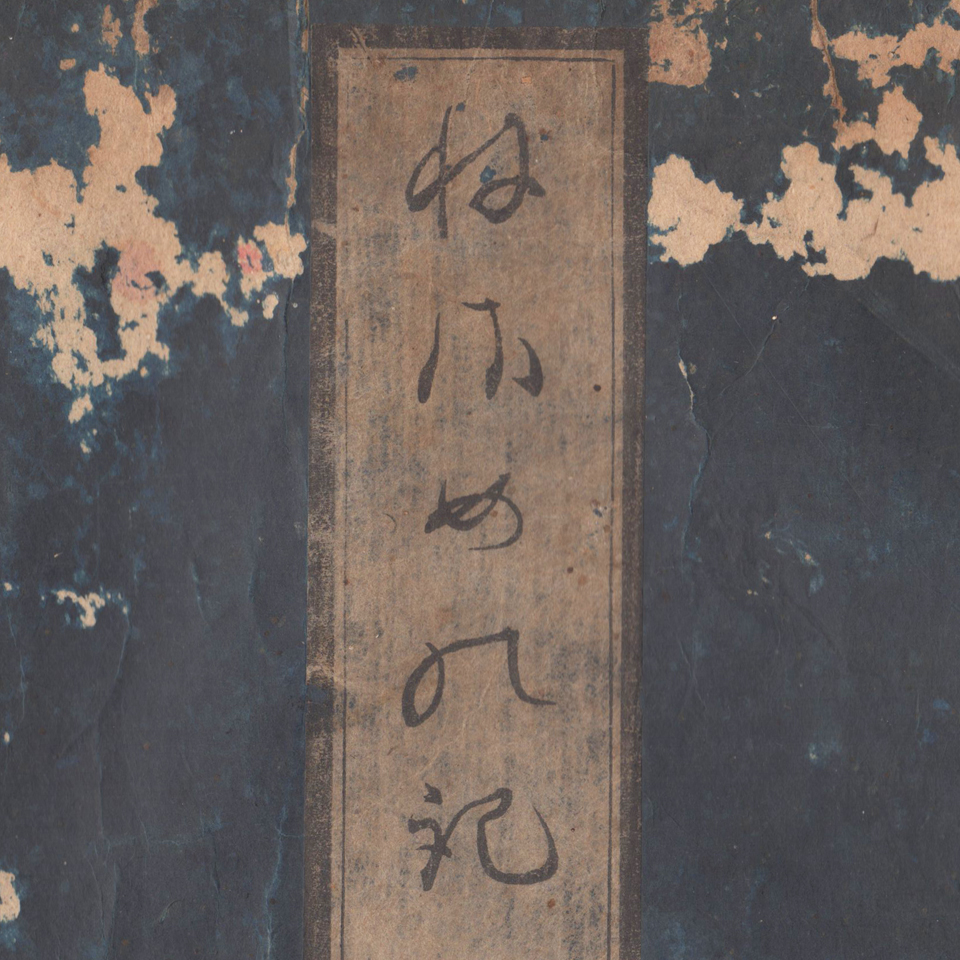 ねさめの記